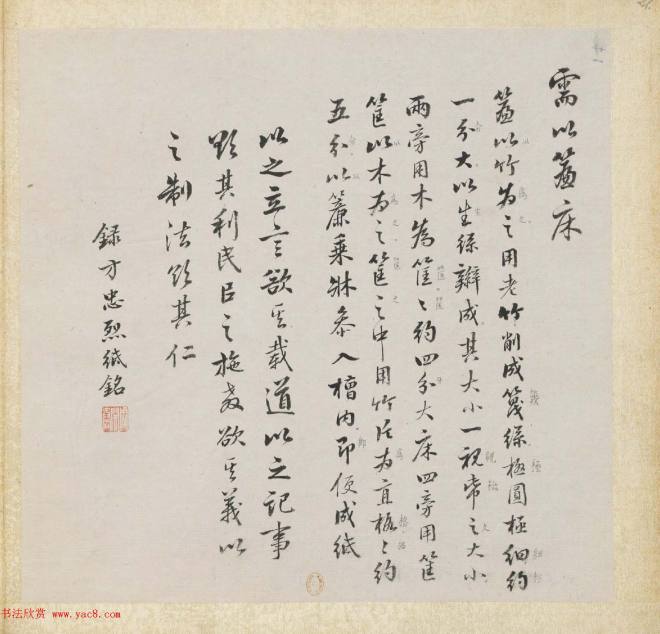 需以簾床
簾以竹為之用老竹削成篾絲極圓極細約
一分大以生絲辮成其大小一視帋之大小
兩旁用木為筐〻約四分大床四旁用筐
筐以木為之筐之中用竹片為直格〻約
五分以簾乗牀叅入槽内即便成紙
以之立言欲其載道以之記事
欲其利民以之施教欲其義以
之制法欲其仁
錄方忠烈紙銘
书法欣赏 www.yac8.com